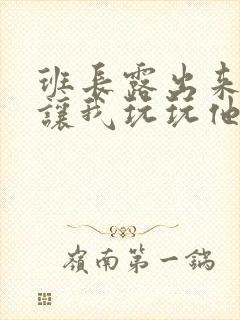 班長露出來
讓我玩玩他
嶺南第一鍋